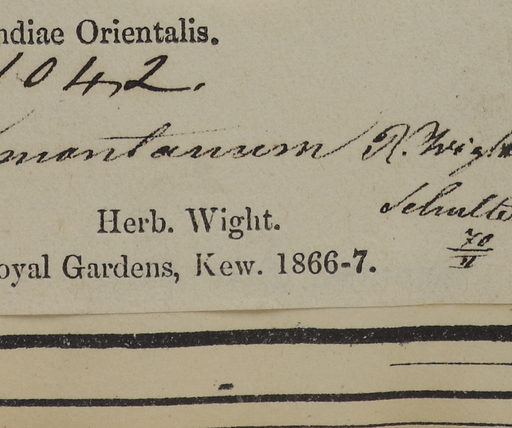 ndiae Orientalis.
1042.
montanum R. Wigh
Schulte
Herb. Wight.
70
11
oyal Gardens, Kew. 1866-7.